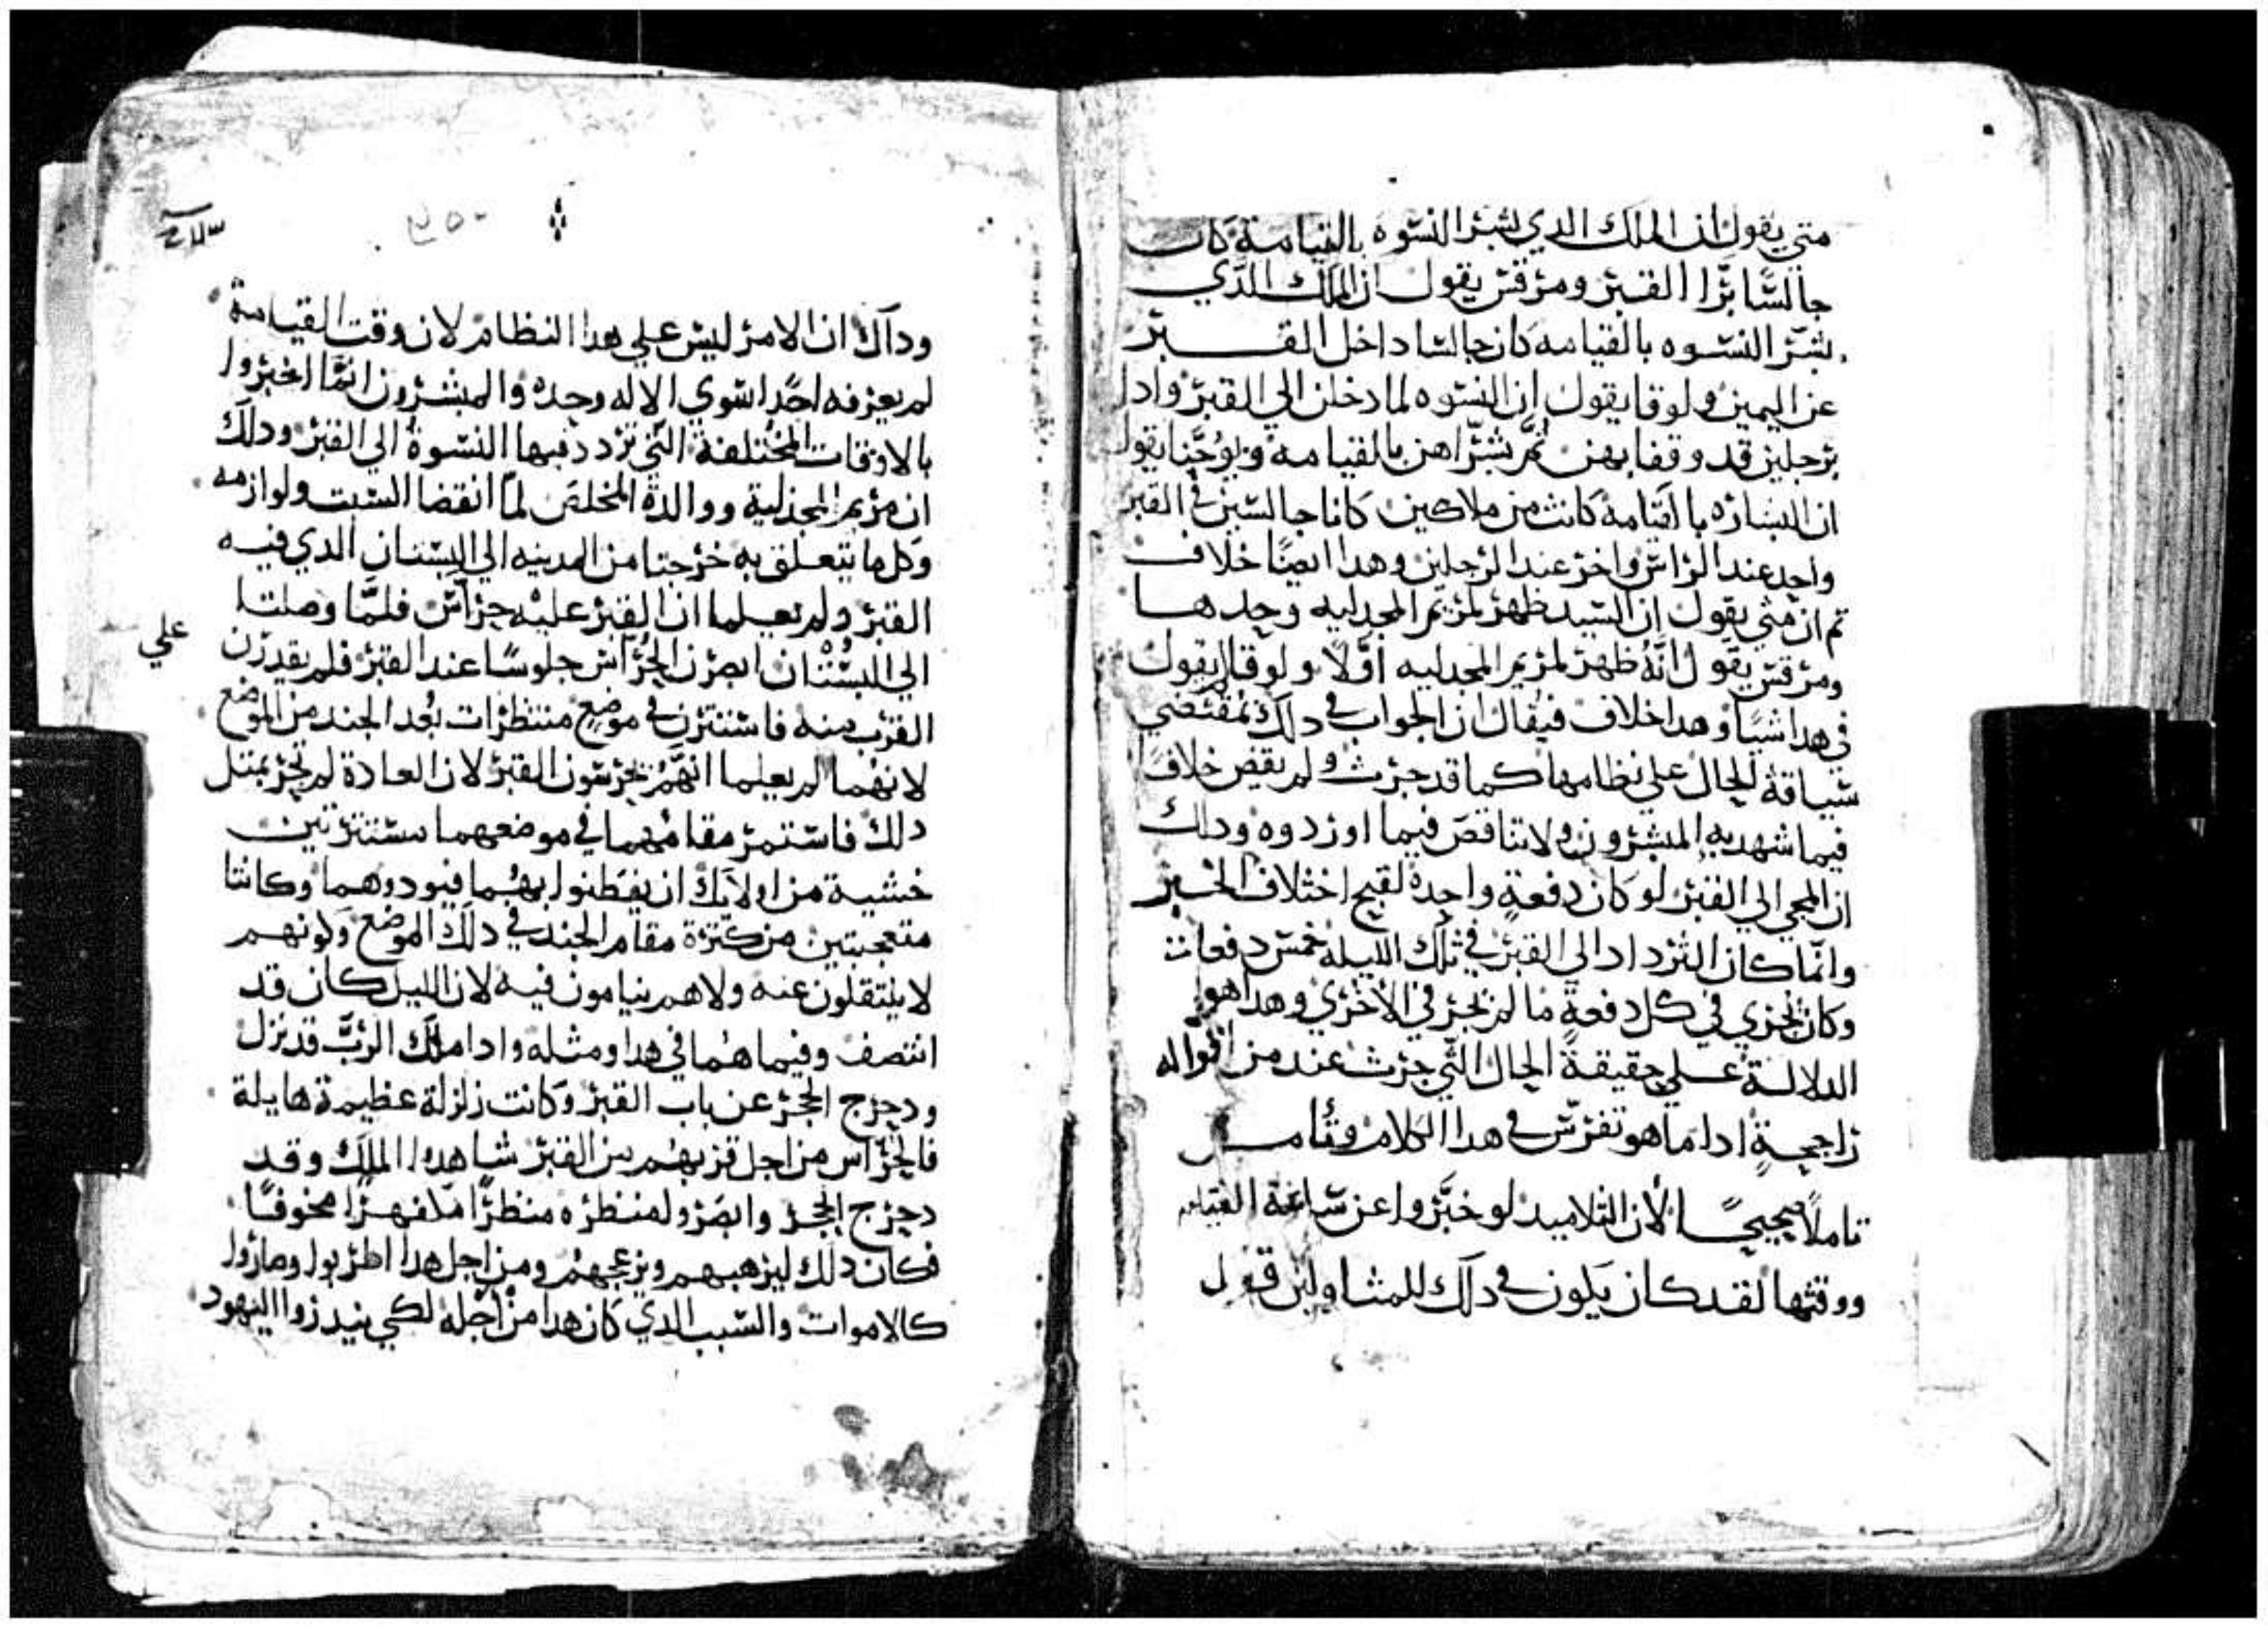 متي يقول ان الملاك الدي بشر النسوه بالقيامة كان
جالسًا برّا القبر ومرقس يقول ان الملاك الدي
بشر النسوه بالقيامه كان جالسا داخل القبر
عن اليمين ولوقا يقول ان النسوه لما دخلن الي القبر وادا
برجلين قد وقفا بهن تم بشراهن بالقيامه ويوحنا يقول
ان البشاره بالقيامة كانت من ملاكين كانا جالسين في القبر
واحد عند الراس واخر عند الرجلين وهدا ايضًا خلاف
تم ان متي يقول ان السيد ظهر لمريم المجدليه وحدها
ومرقس يقول انه ظهر لمريم المجدليه اولًا ولوقا لا يقول
في هدا شيًا وهدا خلاف فيقال ان الجواب في دلك بمقتضي
سياقة الحال علي نظامها كما قد جرت ولم يقض خلافًا
فيما شهد به المبشرون ولا تناقض فيما اوردوه ودلك
ان المجي الي القبر لو كان دفعةٍ واحدة لقبح اختلاف الخبر
وانما كان الترداد الي القبر في تلك الليله خمس دفعات
وكان يجري في كل دفعةٍ ما لم يجر في الاخري وهدا هو
الدلالة علي حقيقة الحال التي جرت عند من اقواله
راجحةٍ ادا ما هو تفرس في هدا الكلام وتامل
تاملًا صحيحًا لان التلاميد لو خبروا عن ساعة القيامه
ووقتها لقد كان يكون في دلك للمتاولين قول
٢٥٠
وداك ان الامر ليس علي هدا النظام لان وقت القيامة
لم يعرفه احدًا سوي الاله وحده والمبشرون انما اخبروا
بالاوقات المختلفة التي تردد فيها النسوة الي القبر ودلك
ان مريم المجدلية ووالدة المخلص لما انقضا السبت ولوازمه
وكل ما يتعلق به خرجتا من المدينه الي البستان الدي فيه
القبر ولم يعلما ان القبر عليه حراس فلما وصلتا
الي البستان ابصرن الحراس جلوسًا عند القبر فلم يقدرن علي
القرب منه فاستترن في موضعٍ منتظرات بُعد الجند من الموضع
لانهما لم يعلما انهم يحرسون القبر لان العادة لم تجر بمتل
دلك فاستمر مقامهما في موضعهما مستترتين
خشية من اولايك ان يفطنوا بهما فيودوهما وكانتا
متعجبتين من كترة مقام الجند في دلك الموضع وكونهم
لا ينتقلون عنه ولا هم ينامون فيه لان الليل كان قد
انتصف وفيما هما في هدا ومثله وادا ملاك الرب قد نزل
ودحرج الحجر عن باب القبر وكانت زلزلة عظيمة هايلة
فالحراس من اجل قربهم من القبر شاهدوا الملاك وقد
دحرج الحجر وابصروا منظره منظرًا مخوفًا
فكان دلك ليرهبهم ويزعجهم ومن اجل هدا اطربوا وصاروا
كالاموات والسبب الدي كان هدا من اجله لكي ينذروا اليهود